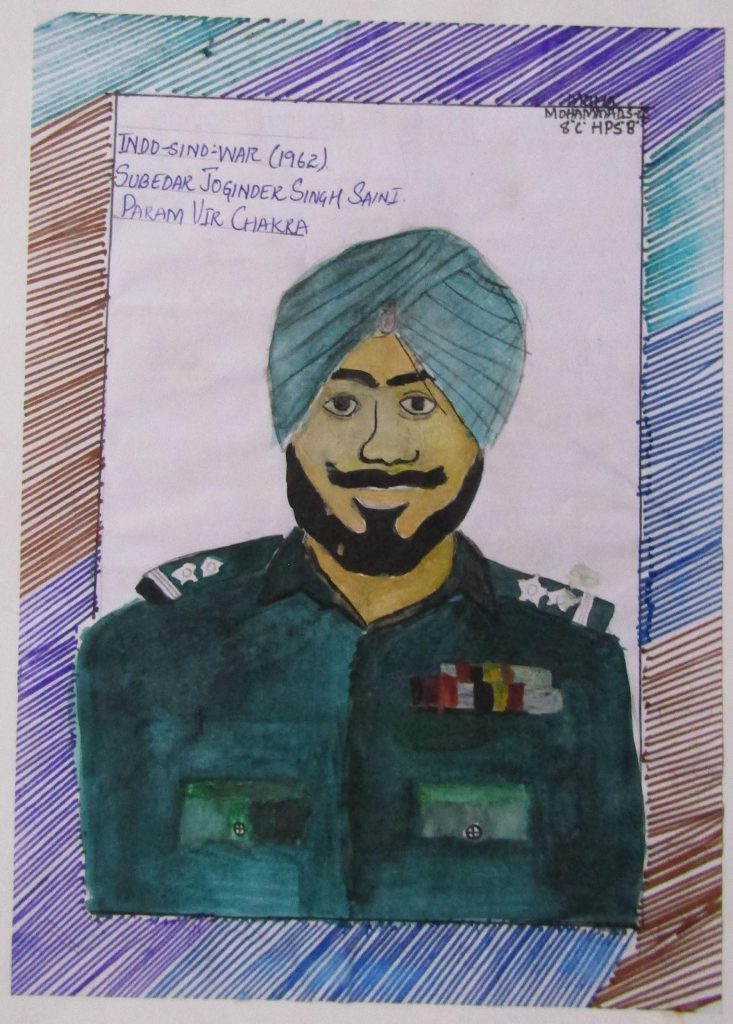 INDO-SINO-WAR (1962)
SUBEDAR JOGINDER SINGH SAINI.
PARAM VIR CHAKRA
8"C" HPS"B"